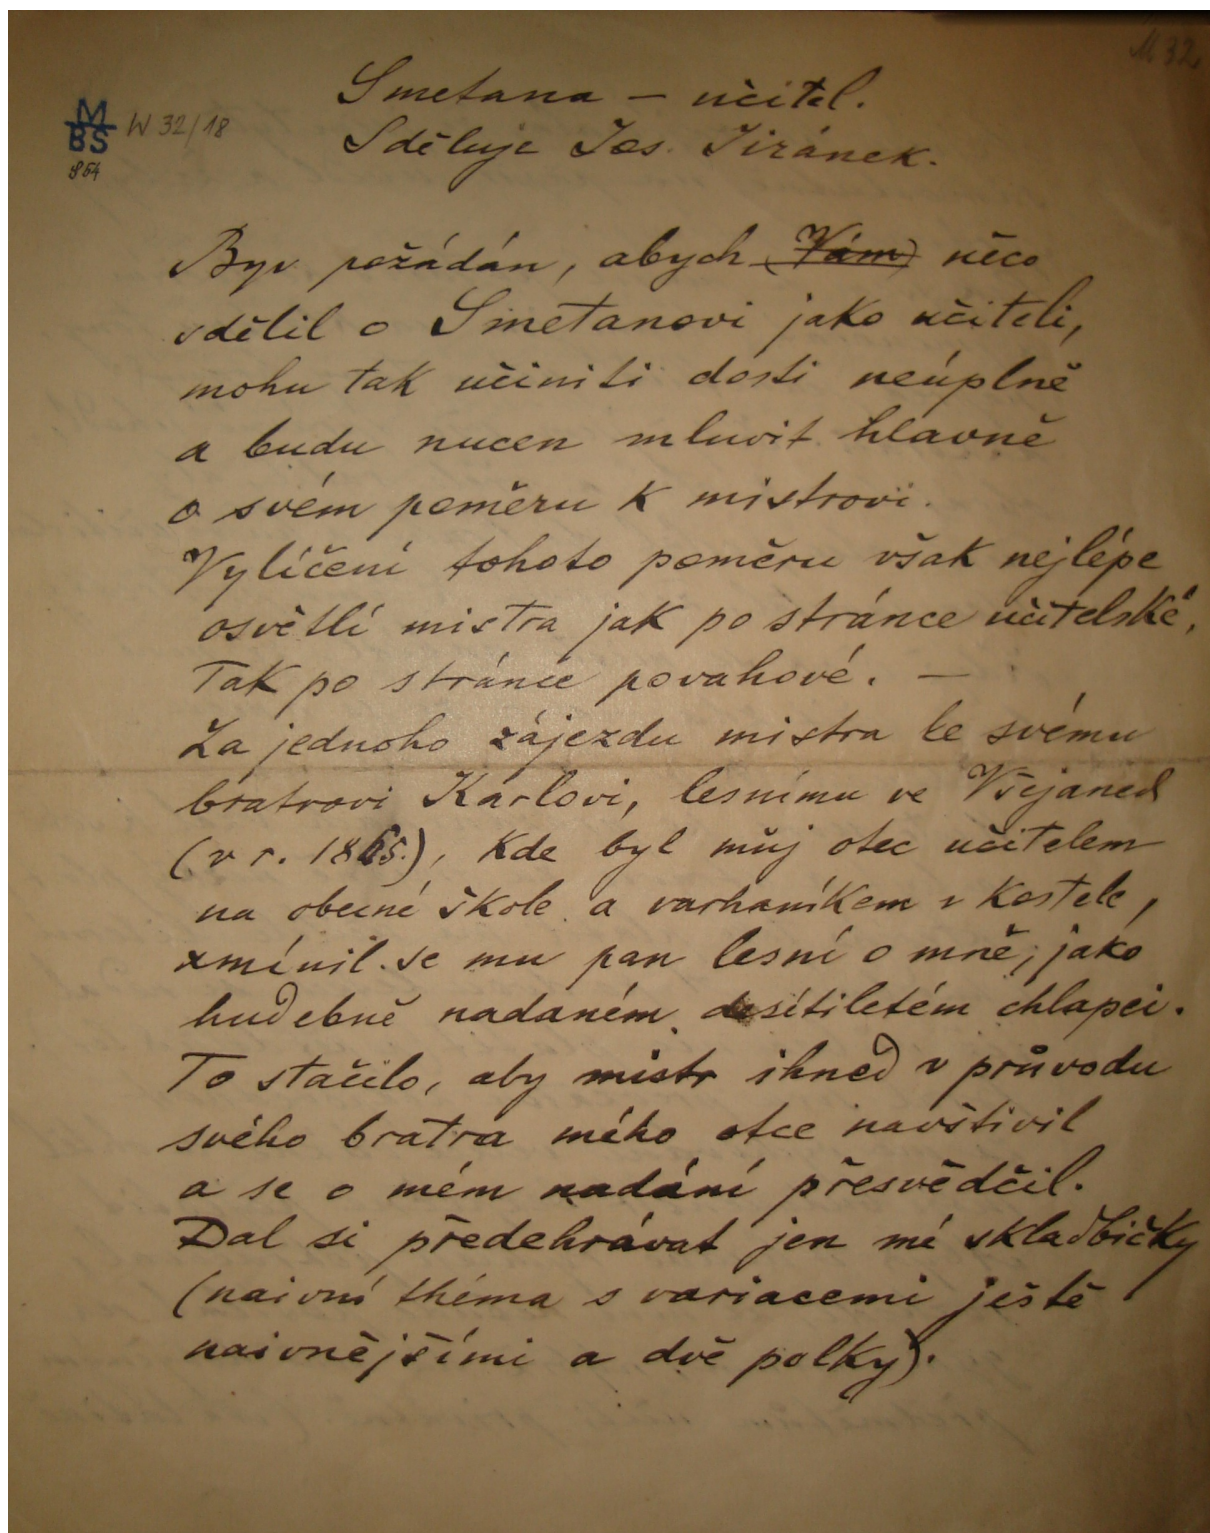 M 32
Smetana – učitel.
M
BS W 32/18
854
Sděluje Jos. Jiránek.
Byv požádán, abych (Vám) něco
sdělil o Smetanovi jako učiteli,
mohu tak učiniti dosti neúplně
a budu nucen mluvit hlavně
o svém poměru k mistrovi.
Vylíčení tohoto poměru však nejlépe
osvětlí mistra jak po stránce učitelské,
tak po stránce povahové. –
Za jednoho zájezdu mistra ke svému
bratrovi Karlovi, lesnímu ve Všejanech
(v r. 1865.), kde byl můj otec učitelem
na obecné škole a varhaníkem v kostele,
zmínil se mu pan lesní o mně, jako
hudebně nadaném desítiletém chlapci.
To stačilo, aby mistr ihned v průvodu
svého bratra mého otce navštivil
a se o mém nadání přesvědčil.
Dal si předehrávat jen mé skladbičky
(naivní théma s variacemi ještě
naivnějšími a dvě polky).